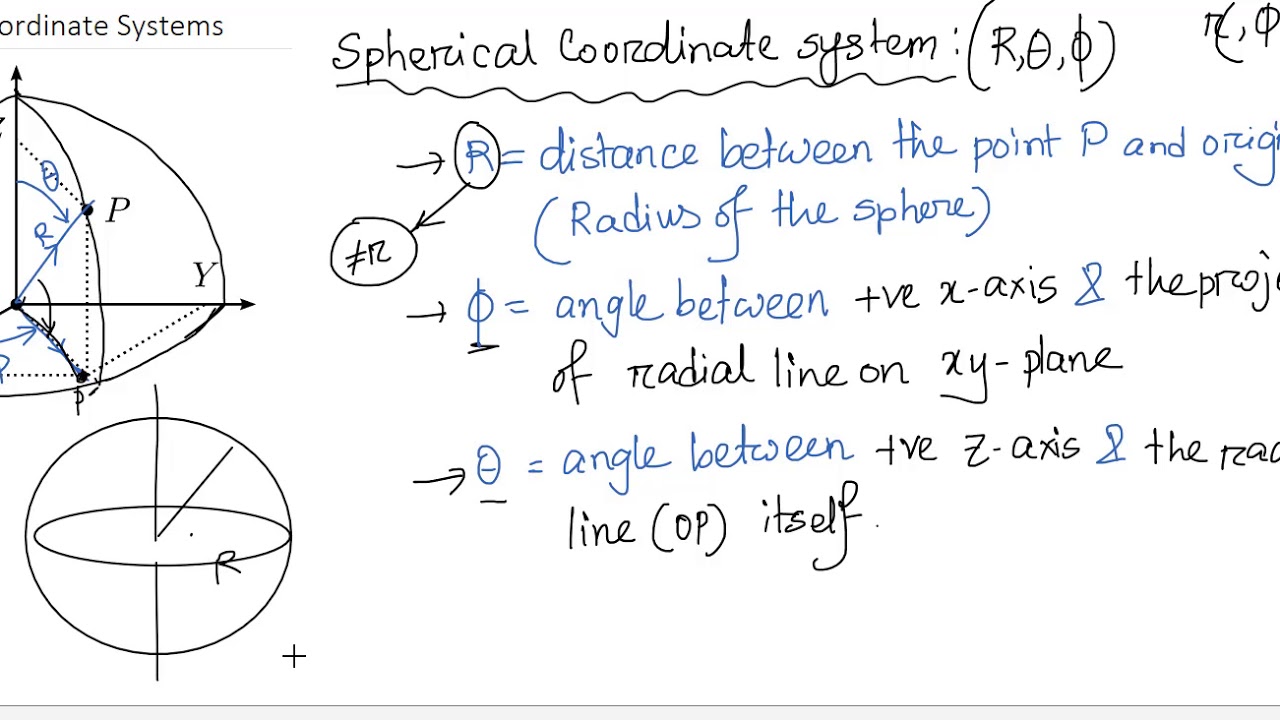 ordinate Systems
Spherical Coordinate system : (R, θ, ϕ) r, ϕ
→ R = distance between the point P and origi
(Radius of the sphere)
≠ r
→ ϕ = angle between +ve x-axis & the proje
of radial line on xy-plane
→ θ = angle between +ve z-axis & the rad
line (OP) itself.
θ
P
R
Y
P'
R